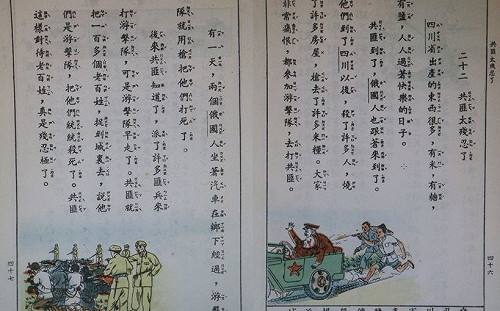 共匪太殘忍了
二十二　共匪太殘忍了
四川省出產的東西很多，有米，有糖，
有鹽，人人過著快樂的日子。
共匪到了，俄國人也跟著來到了。
他們到了四川以後，殺了許多人，燒
了許多房屋，搶去了許多米糧。大家
非常痛恨，都參加游擊隊，去打共匪。
四十六
有一天，兩個俄國人坐著汽車在鄉下經過，游
隊就用槍把他們打死了。
後來共匪知道了，派了許多匪兵來
打游擊隊，可是游擊隊早走了。共匪就
把一百多個老百姓，捉到城裏去，說他
們是游擊隊，把他們統統殺死了。共匪
這樣對待老百姓，真是殘忍極了。
四十七